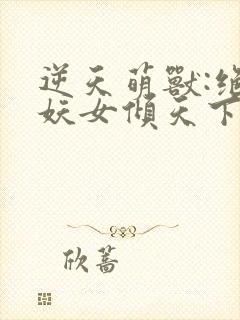 逆天萌獸:絕
妖女傾天下
欣蕎